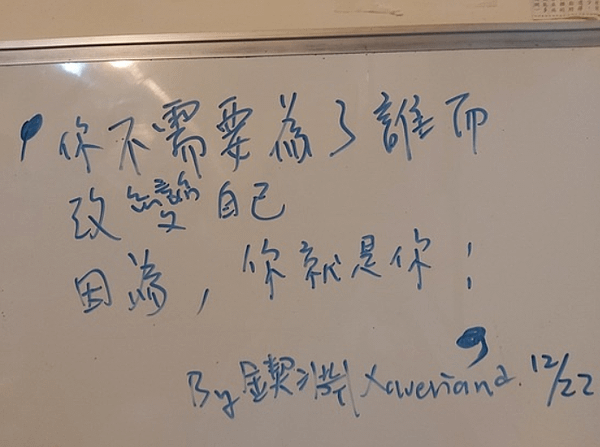 你不需要為了誰而
改變自己
因為，你就是你！
By 12/22